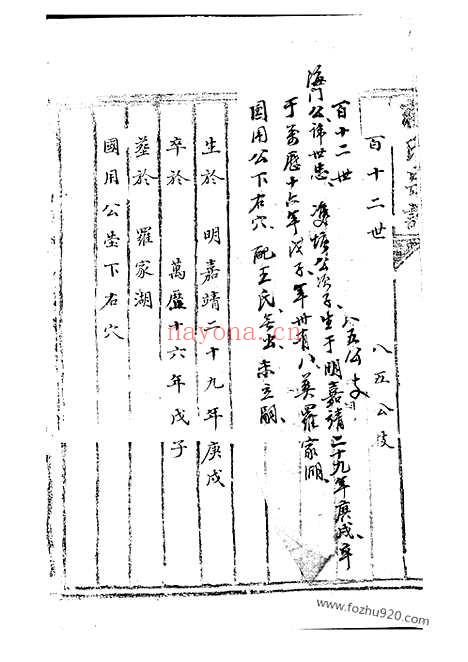 百十二世
八五公支
百十二世
八五公支
海门公讳世忠、
公次子、生于明嘉靖二十九年庚戌、卒
于万历十六年戊子、年卅有八、葬罗家湖、
国用公下右穴、配王氏、無出、未立嗣、
生於 明嘉靖二十九年庚戌
卒於 萬曆十六年戊子
葬於 羅家湖
國用公塋下右穴
nayona.cn
www.fozhu920.com